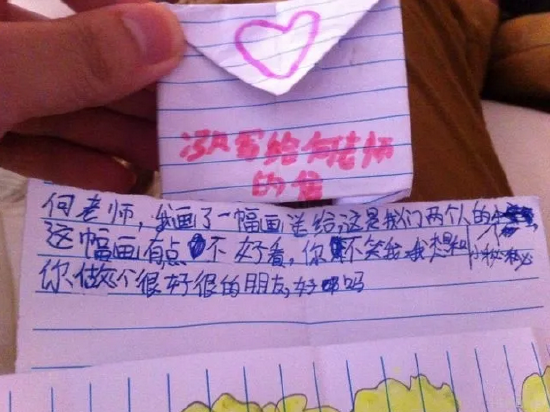 写给何老师
的信
何老师，我画了一幅画送给，这是我们两个人的
这幅画有点不好看，你不笑我，我想和
小秘秘
你做个很好很的朋友，好吗